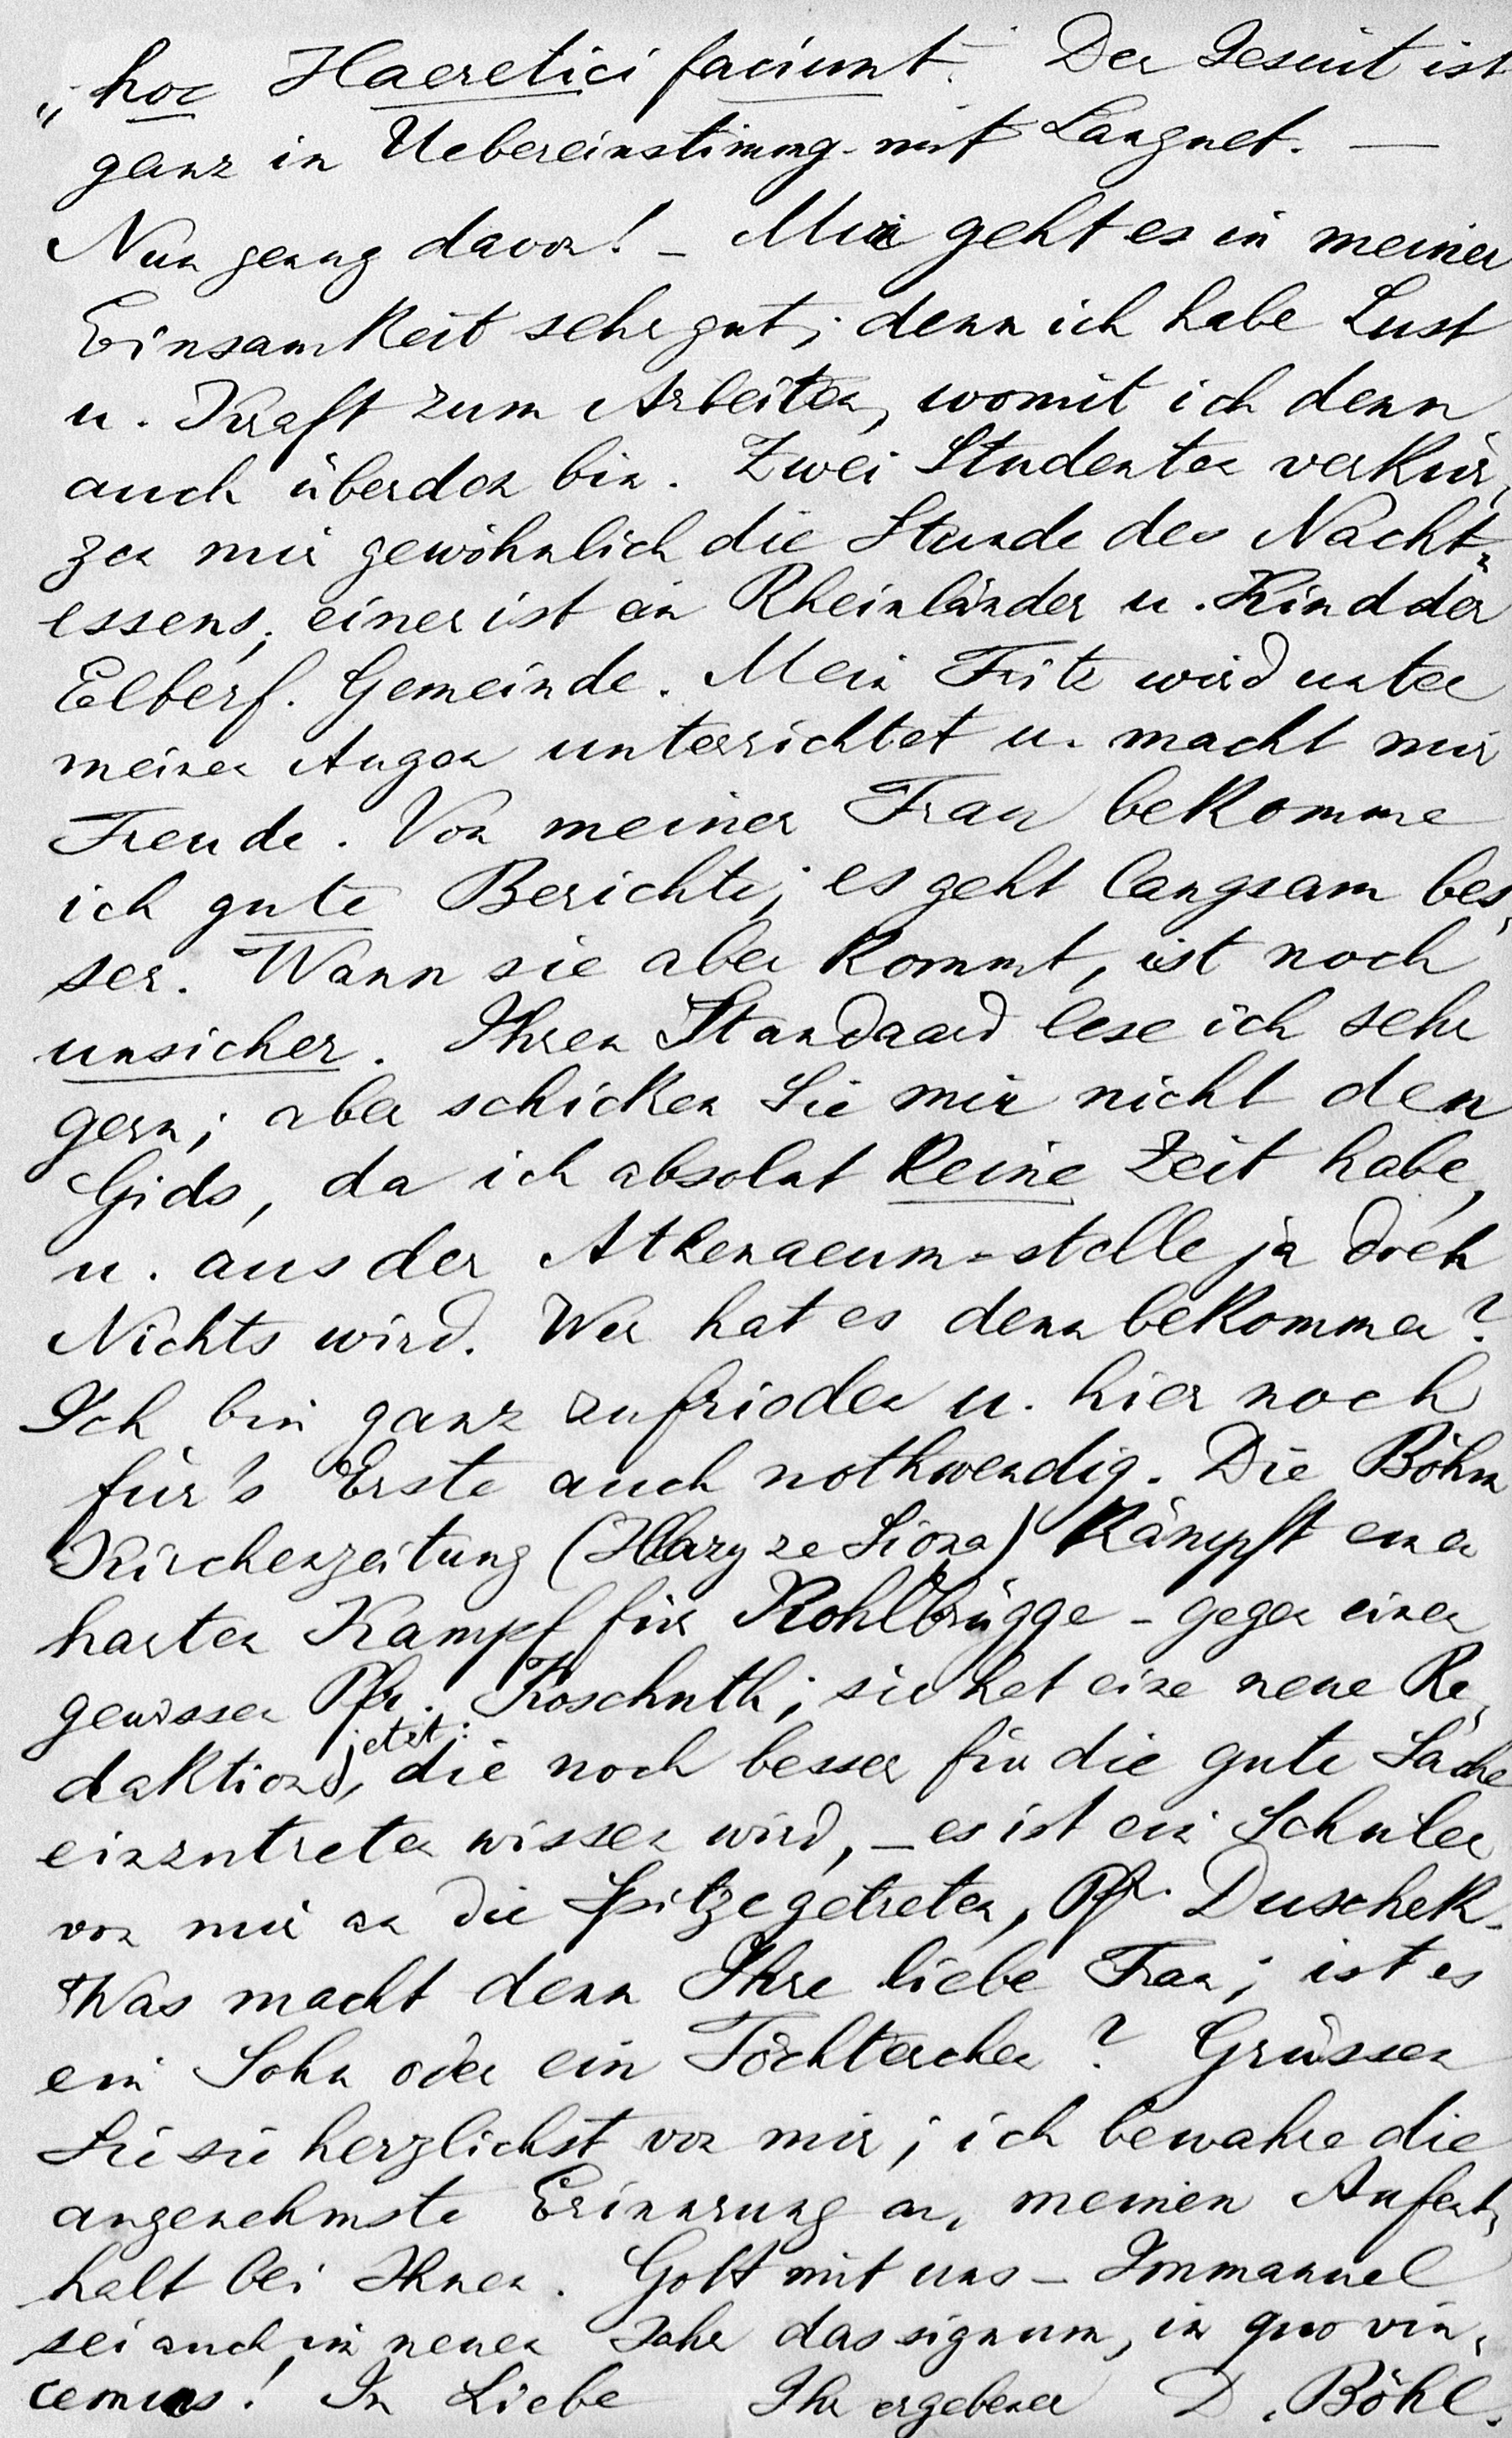 „hoc Haeretici faciunt. Der Jesuit ist
ganz in Uebereinstimmg. mit Languet. —
Nun genug davon! – Mir geht es in meiner
Einsamkeit sehr gut; denn ich habe Lust
u. Kraft zum Arbeiten, womit ich denn
auch überdem bin. Zwei Studenten verkür-
zen mir gewöhnlich die Stunde des Nacht-
essens; einer ist ein Rheinländer u. Kind der
Elberf. Gemeinde. Mein Fritz wird unter
meinen Augen unterrichtet u. macht mir
Freude. Von meiner Frau bekomme
ich gute Berichte; es geht langsam bes-
ser. Wann sie aber kommt, ist noch
unsicher. Ihren Standaard lese ich sehr
gern; aber schicken Sie mir nicht den
Gids, da ich absolut keine Zeit habe,
u. aus der Athenaeum-stelle ja doch
Nichts wird. Wer hat es denn bekommen?
Ich bin ganz zufrieden u. hier noch
für's Erste auch nothwendig. Die Böhm
Kirchenzeitung (Hlasy ze Siona) kämpft einen
harten Kampf für Kohlbrügge – gegen einen
gewissen Pfr. Koschuth; sie hat eine neue Re-
daktion jetzt, die noch besser für die gute Sache
einzutreten wissen wird, – es ist ein Schüler
von mir an die Spitze getreten, Pfr. Duschek.
Was macht denn Ihre liebe Frau; ist es
ein Sohn oder ein Töchterchen? Grüssen
Sie sie herzlichst von mir; ich bewahre die
angenehmste Erinnrung an, meinen Aufent-
halt bei Ihnen. Gott mit uns – Immanuel
sei auch im neuen Jahr das signum, in quo vin-
cemus! In Liebe Ihr ergebener D. Böhl.